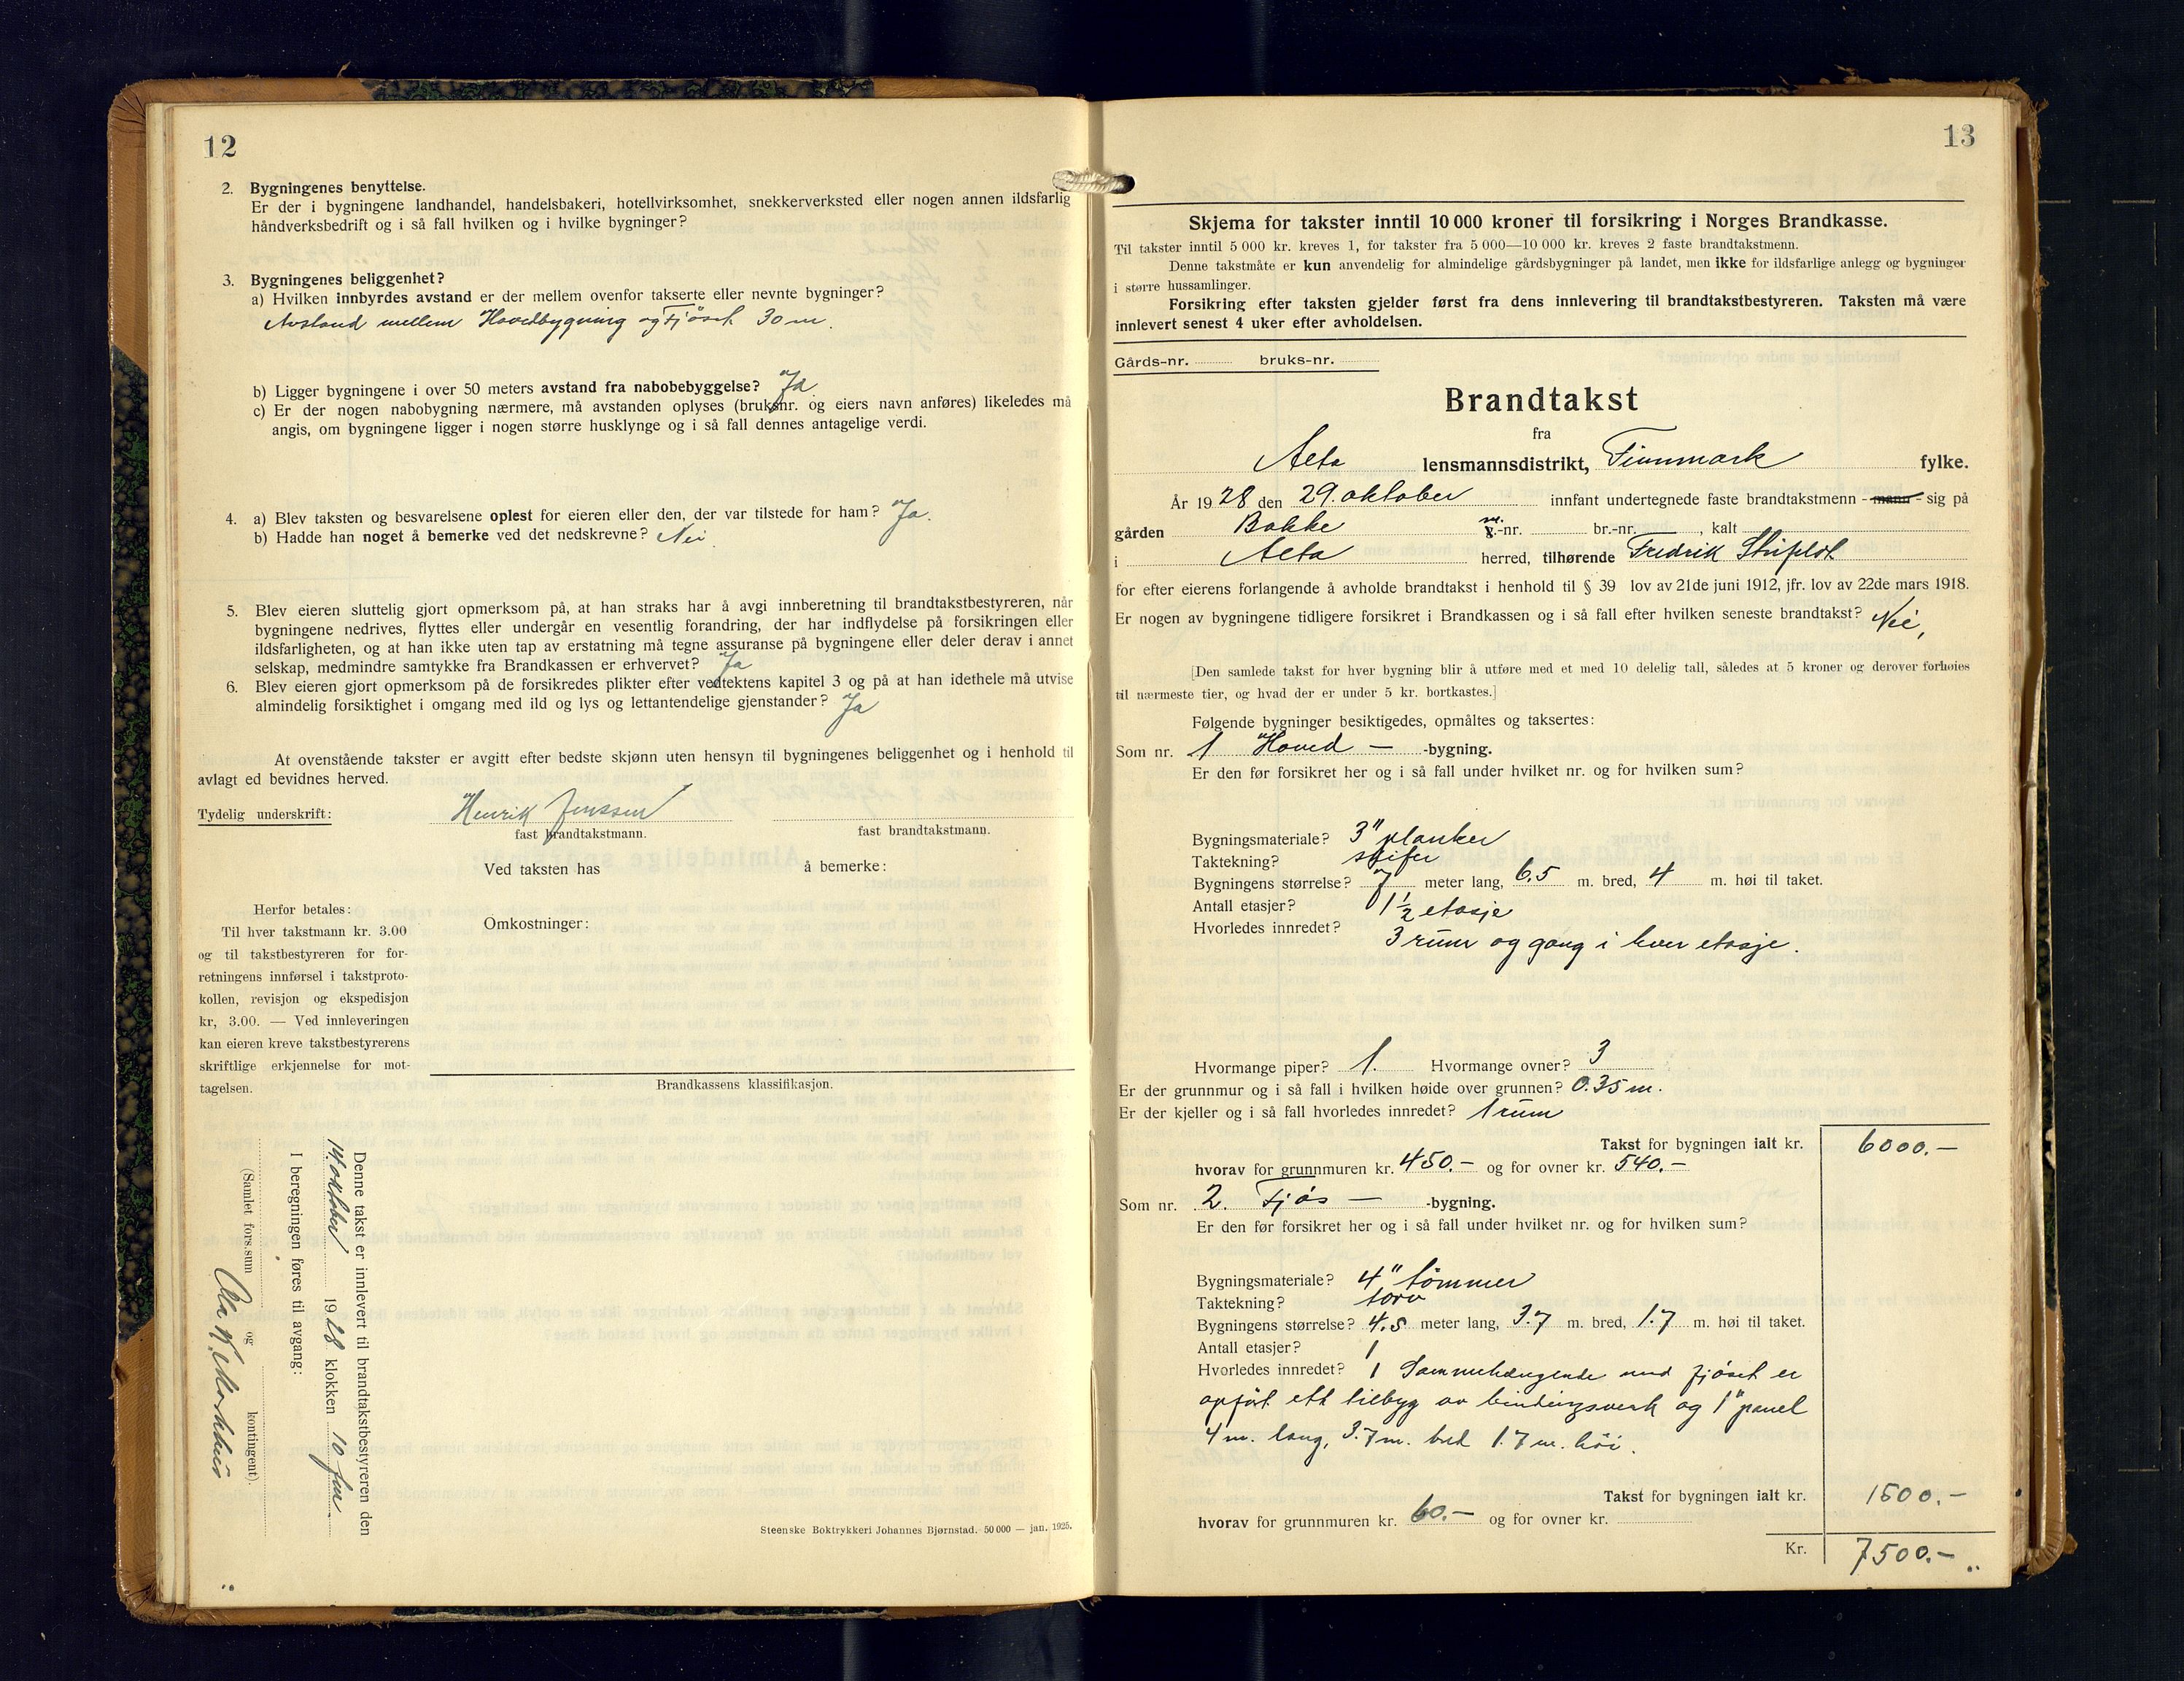 12
2. Bygningenes benyttelse.
Er der i bygningene landhandel, handelsbakeri, hotellvirksomhet, snekkerverksted eller nogen annen ildsfarlig
håndverksbedrift og i så fall hvilken og i hvilke bygninger?
3. Bygningenes beliggenhet?
a) Hvilken innbyrdes avstand er der mellem ovenfor takserte eller nevnte bygninger?
Avstand mellem Hovedbygning og Fjøset 30 m.
b) Ligger bygningene i over 50 meters avstand fra nabobebyggelse? Ja
c) Er der nogen nabobygning nærmere, må avstanden oplyses (bruksnr. og eiers navn anføres) likeledes må
angis, om bygningene ligger i nogen større husklynge og i så fall dennes antagelige verdi.
4. a) Blev taksten og besvarelsene oplest for eieren eller den, der var tilstede for ham? Ja.
b) Hadde han noget å bemerke ved det nedskrevne? Nei
5. Blev eieren sluttelig gjort opmerksom på, at han straks har å avgi innberetning til brandtakstbestyreren, når
bygningene nedrives, flyttes eller undergår en vesentlig forandring, der har indflydelse på forsikringen eller
ildsfarligheten, og at han ikke uten tap av erstatning må tegne assuranse på bygningene eller deler derav i annet
selskap, medmindre samtykke fra Brandkassen er erhvervet? Ja
6. Blev eieren gjort opmerksom på de forsikredes plikter efter vedtektens kapitel 3 og på at han idethele må utvise
almindelig forsiktighet i omgang med ild og lys og lettantendelige gjenstander? Ja
At ovenstående takster er avgitt efter bedste skjønn uten hensyn til bygningenes beliggenhet og i henhold til
avlagt ed bevidnes herved.
Tydelig underskrift: Henrik Jenssen
fast brandtakstmann. fast brandtakstmann.
Ved taksten has å bemerke:
Herfor betales:
Til hver takstmann kr. 3.00
og til takstbestyreren for for-
retningens innførsel i takstproto-
kollen, revisjon og ekspedisjon
kr, 3.00. — Ved innleveringen
kan eieren kreve takstbestyrerens
skriftlige erkjennelse for mot-
tagelsen.
Omkostninger:
Brandkassens klassifikasjon.
Denne takst er innlevert til brandtakstbestyreren den
oktober 1928 klokken 10 fm.
I beregningen føres til avgang:
(Samlet fors.sum og kontingent).
Steenske Boktrykkeri Johannes Bjørnstad. 50 000 — jan. 1925.
13
Skjema for takster inntil 10 000 kroner til forsikring i Norges Brandkasse.
Til takster inntil 5 000 kr. kreves 1, for takster fra 5 000—10 000 kr. kreves 2 faste brandtakstmenn.
Denne takstmåte er kun anvendelig for almindelige gårdsbygninger på landet, men ikke for ildsfarlige anlegg og bygninger
i større hussamlinger.
Forsikring efter taksten gjelder først fra dens innlevering til brandtakstbestyreren. Taksten må være
innlevert senest 4 uker efter avholdelsen.
Gårds-nr. bruks-nr.
Brandtakst
fra
Alta lensmannsdistrikt, Finnmark fylke.
År 1928 den 29. oktober innfant undertegnede faste brandtakstmenn - mann - sig på
gården Bakke m.-nr. br.-nr. , kalt
i Alta herred, tilhørende Fredrik
for efter eierens forlangende å avholde brandtakst i henhold til § 39 lov av 21de juni 1912, jfr. lov av 22de mars 1918.
Er nogen av bygningene tidligere forsikret i Brandkassen og i så fall efter hvilken seneste brandtakst? Nei,
[Den samlede takst for hver bygning blir å utføre med et med 10 delelig tall, således at 5 kroner og derover forhøies
til nærmeste tier, og hvad der er under 5 kr. bortkastes.]
Følgende bygninger besiktigedes, opmåltes og taksertes:
Som nr. 1 Hoved — -bygning.
Er den før forsikret her og i så fall under hvilket nr. og for hvilken sum?
Bygningsmateriale? 3" planker
Taktekning? skifer
Bygningens størrelse? 7 meter lang, 6.5 m. bred, 4 m. høi til taket.
Antall etasjer? 1 1/2 etasje
Hvorledes innredet? 3 rum og gang i hver etasje.
Hvormange piper? 1. Hvormange ovner? 3
Er der grunnmur og i så fall i hvilken høide over grunnen? 0.35 m.
Er der kjeller og i så fall hvorledes innredet? 1 rum
Takst for bygningen ialt kr. 6000.—
hvorav for grunnmuren kr. 450.— og for ovner kr. 540.—
Som nr. 2. Fjøs — -bygning.
Er den før forsikret her og i så fall under hvilket nr. og for hvilken sum?
Bygningsmateriale? 4" tømmer
Taktekning? torv
Bygningens størrelse? 4.5 meter lang, 3.7 m. bred, 1.7 m. høi til taket.
Antall etasjer? 1
Hvorledes innredet? 1 Sammenhengende med fjøset er
opført ett tilbyg av bindingsverk og 1" panel
4 m. lang, 3.7 m. bred 1.7 m. høi.
Takst for bygningen ialt kr. 1500.—
hvorav for grunnmuren kr. 60.— og for ovner kr.
Kr. 7500.—